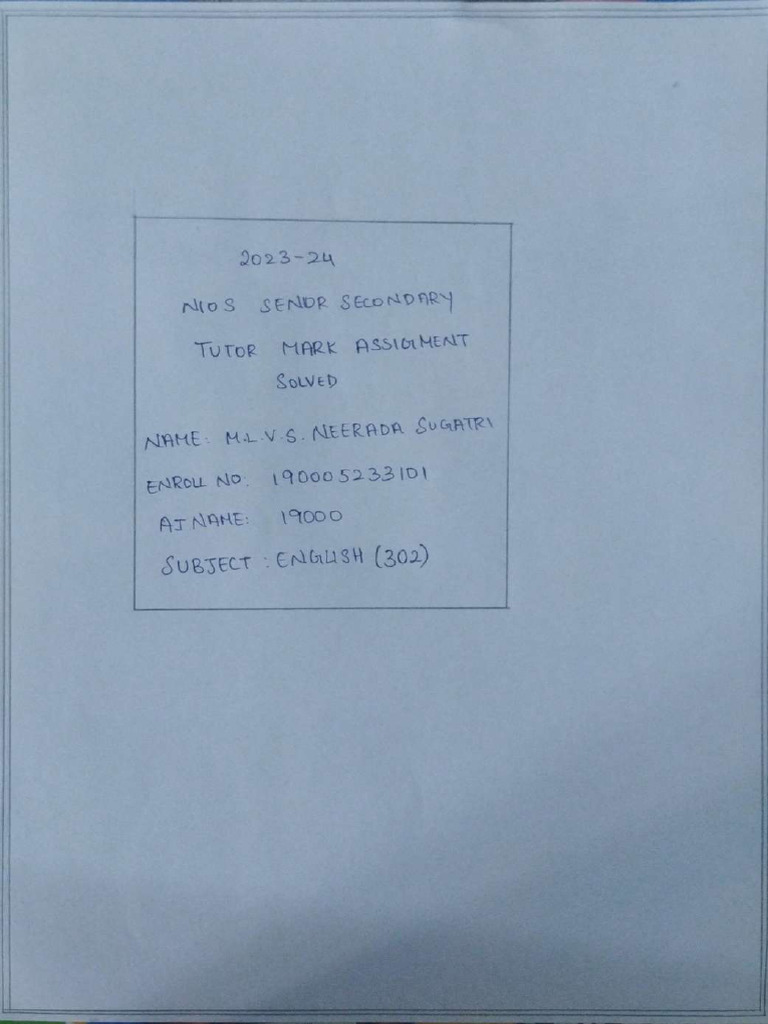 2023-24
NIOS SENOR SECONDARY
TUTOR MARK ASSIGMENT
SOLVED
NAME: M.L.V.S. NEERADA SUGATRI
ENROLL NO: 190005233101
AI NAME: 19000
SUBJECT : ENGLISH (302)